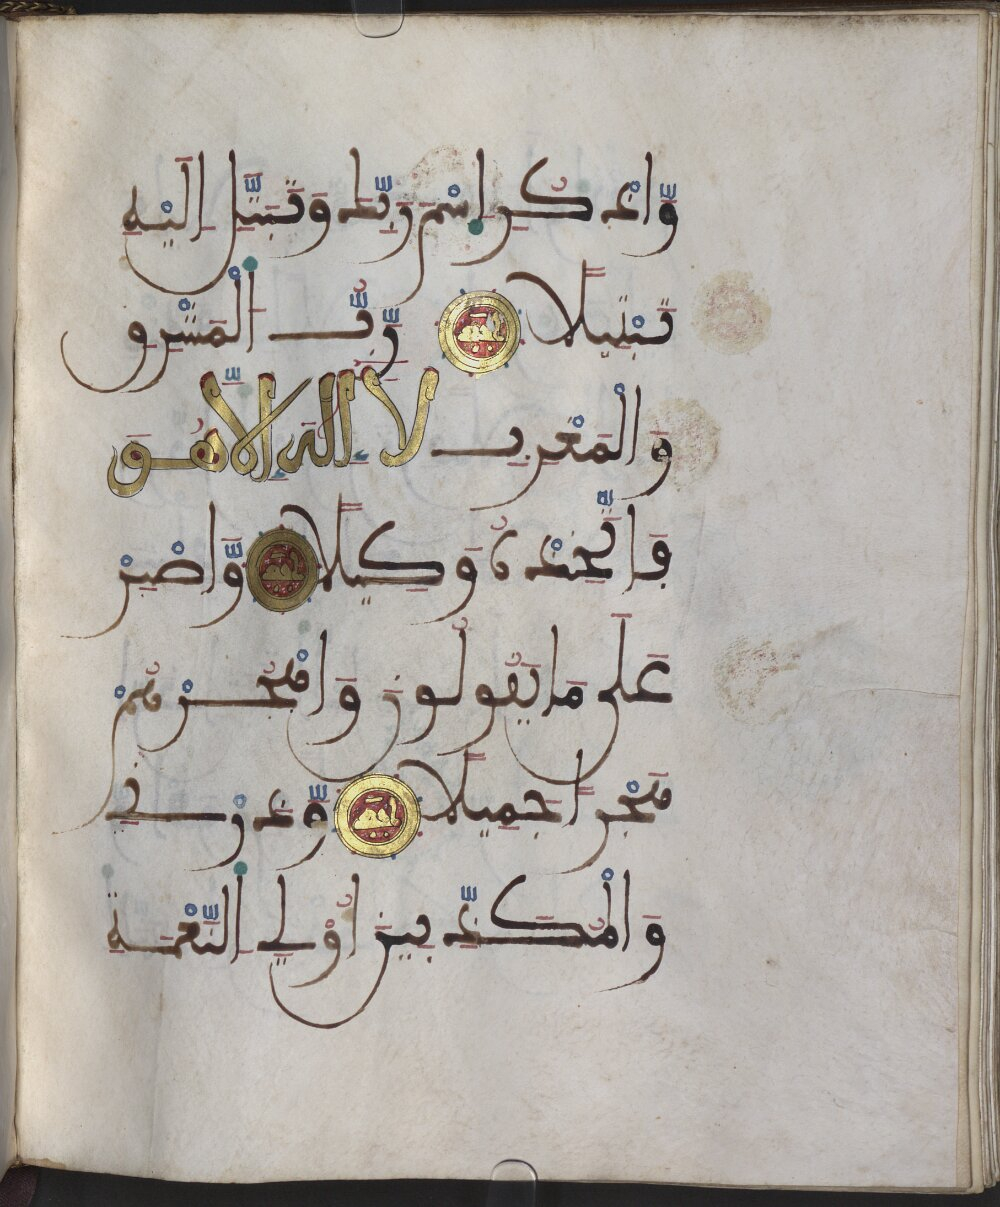 وَاذْكُرِ اسْمَ رَبِّكَ وَتَبَتَّلِ اِلَيْهِ
تَبْتِيلًا رَّبُّ الْمَشْرِقِ
وَالْمَغْرِبِ لَا اِلَهَ اِلَّا هُوَ
فَاتَّخِذْهُ وَكِيلًا وَّاصْبِرْ
عَلَى مَا يَقُولُونَ وَاهْجُرْهُمْ
هَجْرًا جَمِيلًا وَّذَرْنِي
وَالْمُكَذِّبِينَ أُوْلِي النَّعْمَةِ